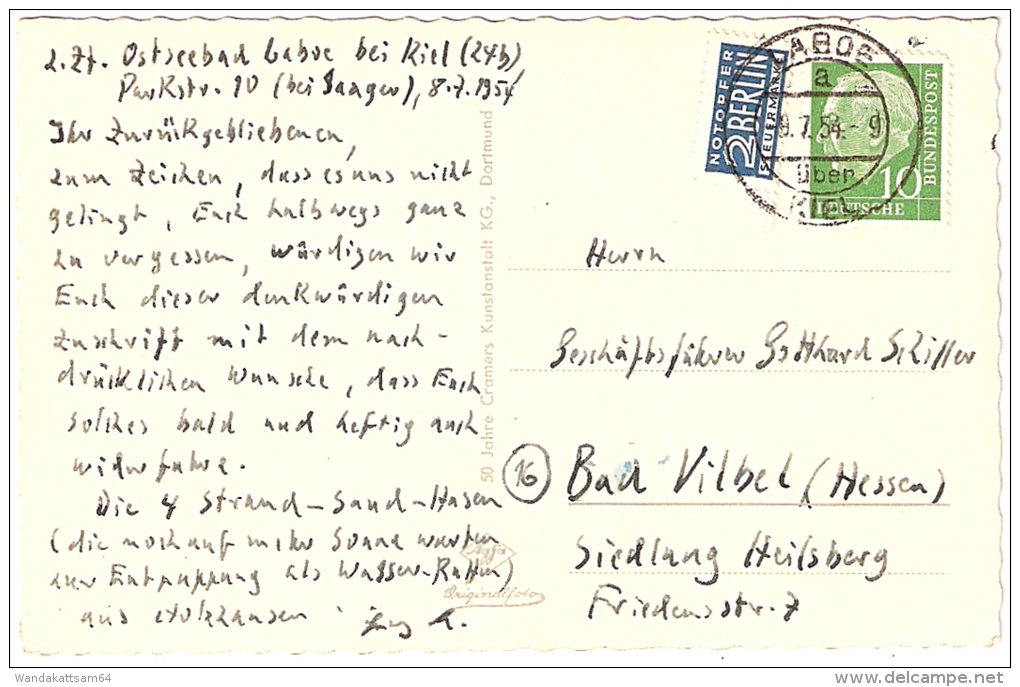 z. Zt. Ostseebad Laboe bei Kiel (24b)
Parkstr. 10 (bei Saager), 8.7.1954
Ihr Zurückgebliebenen,
zum Zeichen, dass es uns nicht
gelingt, Euch halbwegs ganz
zu vergessen, würdigen wir
Euch dieser denkwürdigen
Zuschrift mit dem nach-
drücklichen Wunsche, dass Euch
solches bald und heftig auch
widerfahre.
Die 4 Strand-Sand-Hasen
(die noch auf mehr Sonne warten
zur Entpuppung als Wasser-Ratten)
aus Holzhausen
50 Jahre Cramers Kunstanstalt KG., Dortmund
Agfa
Originalfoto
NOTOPFER
2 BERLIN
STEUERMARKE
LABOE
a
8.7.54.-9
über
KIEL
10
DEUTSCHE
BUNDESPOST
Herrn
Geschäftsführer Gotthard Schiller
(16) Bad Vilbel (Hessen)
Siedlung Heilsberg
Friedensstr. 7
Wandakattsam64
www.delcampe.net